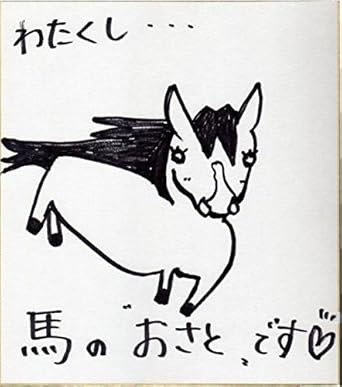 わたくし・・・
馬の“おさと”です♡